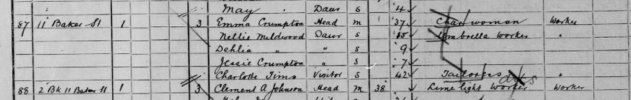 May " Daur S 4
87 11 Baker St 1 3 Emma Crumpton Head M 37 Char woman Worker
Nellie Mildwood Daur S 15 Umbrella worker "
Dehlia " " S 9
Jessie Crumpton " S 7
Charlotte Tims Visitor S 42 Tailoress "
88 2 Bk 11 Baker St 1 3 Clement A Johnson Head M 38 Lime light worker Worker